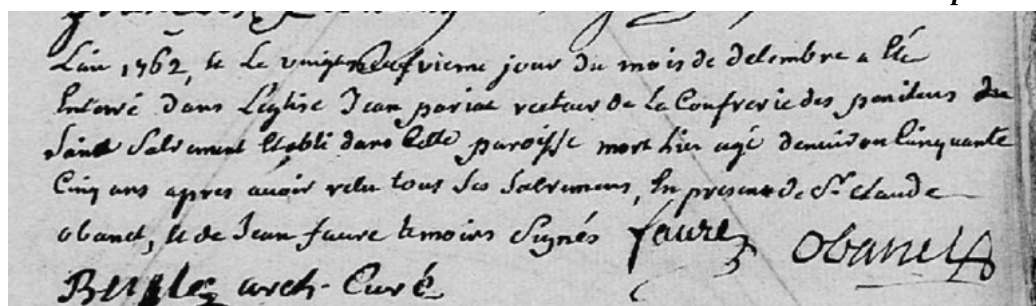 L'an 1762, & le vingt neufvieme jour du mois de decembre a été
Enterré dans L'eglise Jean pariat recteur de La Confrerie des penitens du
Saint Sacrement Etabli dans Cette paroisse mort hier agé denviron Cinquante
Cinq ans apres avoir recu tous Ses Sacremens, En presence de Sr. Claude
obanel, & de Jean faure temoins Signés faure Obanel
arch. Curé